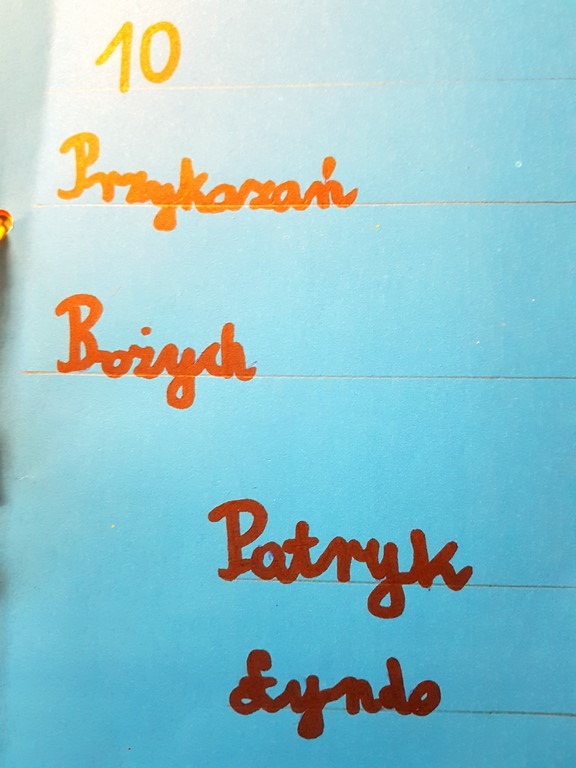 10
Przykazań
Bożych
Patryk
Łyndo